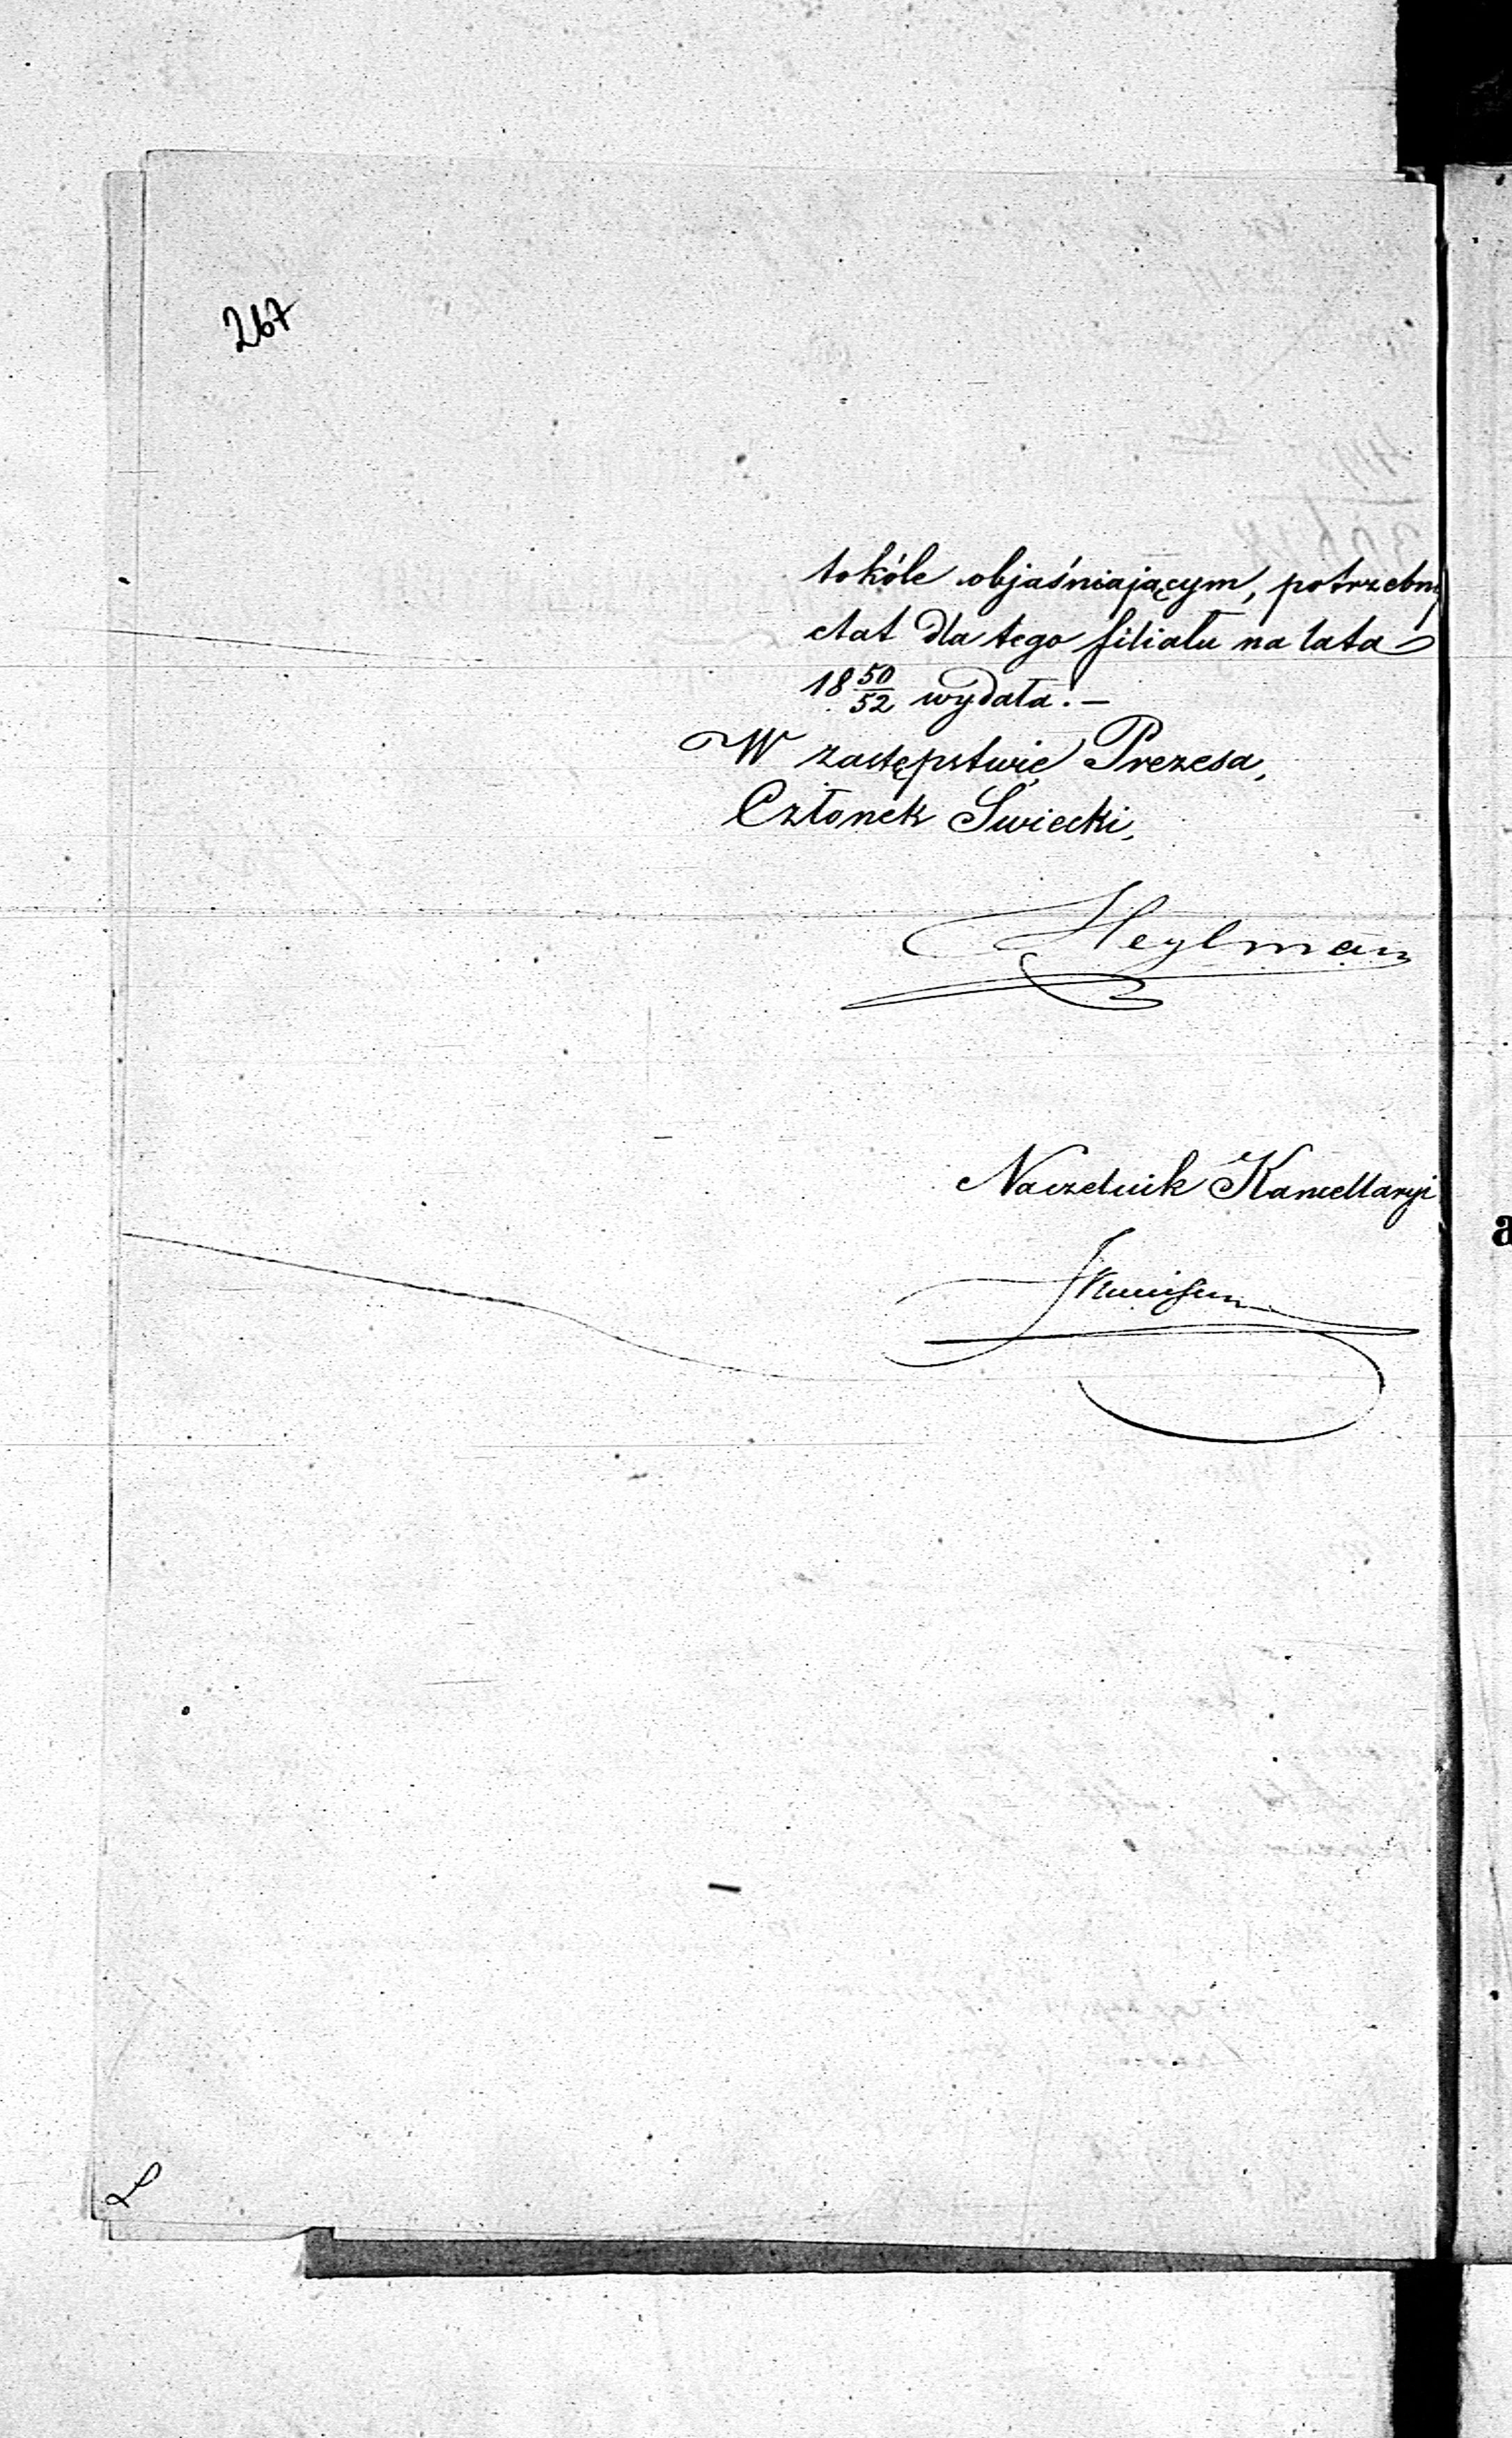 267
tokóle objaśniającym, potrzebny
etat dla tego filiału na lata
18 50/52 wydała. —
W zastępstwie Prezesa,
Członek Świecki,
Heylman
Naczelnik Kancellaryi
L
a